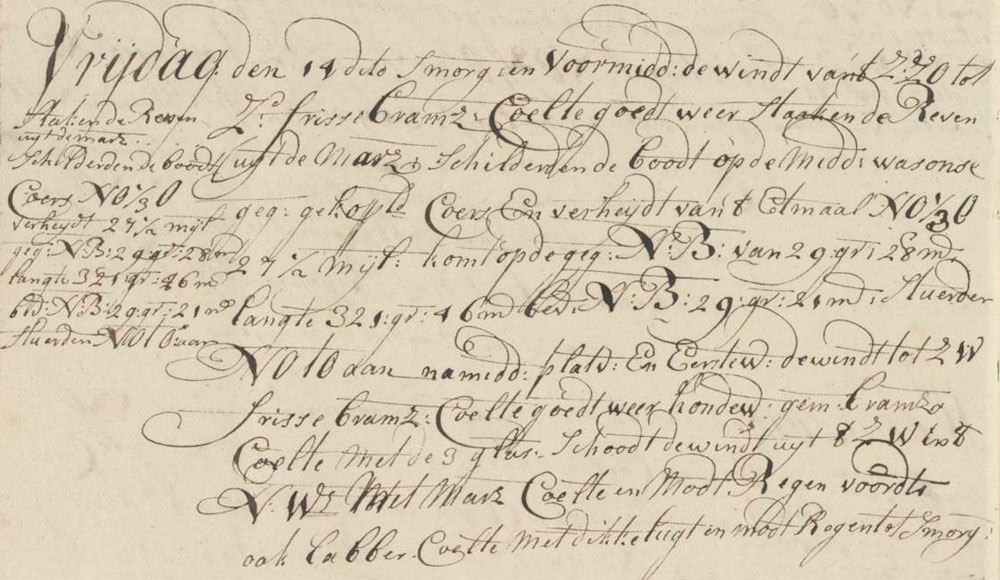 Vrijdag: den 14 dito Smorg en Voormidd: de windt van't Z:ZO tot
Z: frisse bramz: Coelte goedt weer Staaken de Reven
uyt de Marz: Schilderden de boodt op de Midd: was onse
geg: gekopld Coers En verheydt van't Etmaal NO⅓O
27½ mijl: komt op de geg: N:B: van 29.gr: 28 md:
langte 321:gr: 46 md bed: N:B: 29:gr: 21 md: Stuerden
NO to aan namidd: platv: En Eerstew: de windt tot ZW
frisse bramz: Coelte goedt weer hondew: gem: bramz
Coelte Met de 3 glas: Schoodt de windt uyt 't ZW in't
N:Wt Met Marz Coelte en Modt Regen voordts
ook labber Coelte Met dikke lugt en modt Regen tot Smorg:
Staken de Reven
uyt de marz:
Schilderden de boodt
Coers NO⅓O
verheydt 27½ mijl
geg: N:B: 29 gr: 28 m
langte 321 gr: 46 md
bed: N:B: 29:gr: 21 md
Stuerden NO to aan